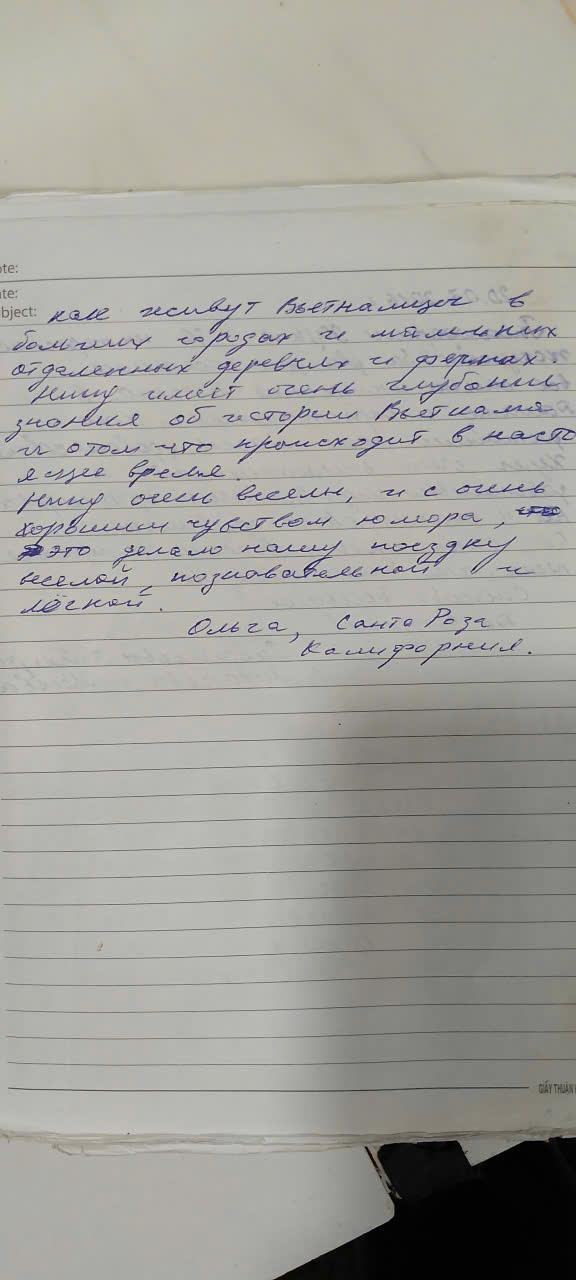 ote:
ate:
bject: как живут Вьетнамцы в
больших городах и маленьких
отдаленных деревнях и фермах
Нину имеет очень глубокии
знания об истории Вьетнама
и отом что происходит в насто
ящее время.
Нину очень веселы, и с очень
хорошим чувством юмора,
это делало нашу поездку
веселой, познавательной и
лёгкой.
Ольга, Санта Роза
Калифорния.
GIẤY THUẬN